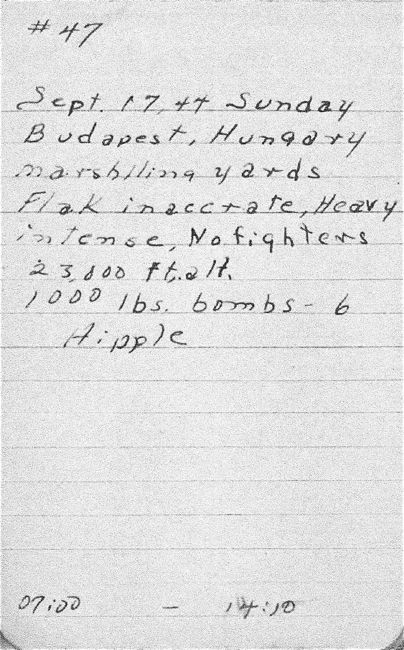 #47
Sept. 17, 44 Sunday
Budapest, Hungary
marshlling yards
Flak inaccrate, Heavy
intense, No fighters
23,000 ft. alt.
1000 lbs. bombs - 6
Hipple
07:00 - 14:10